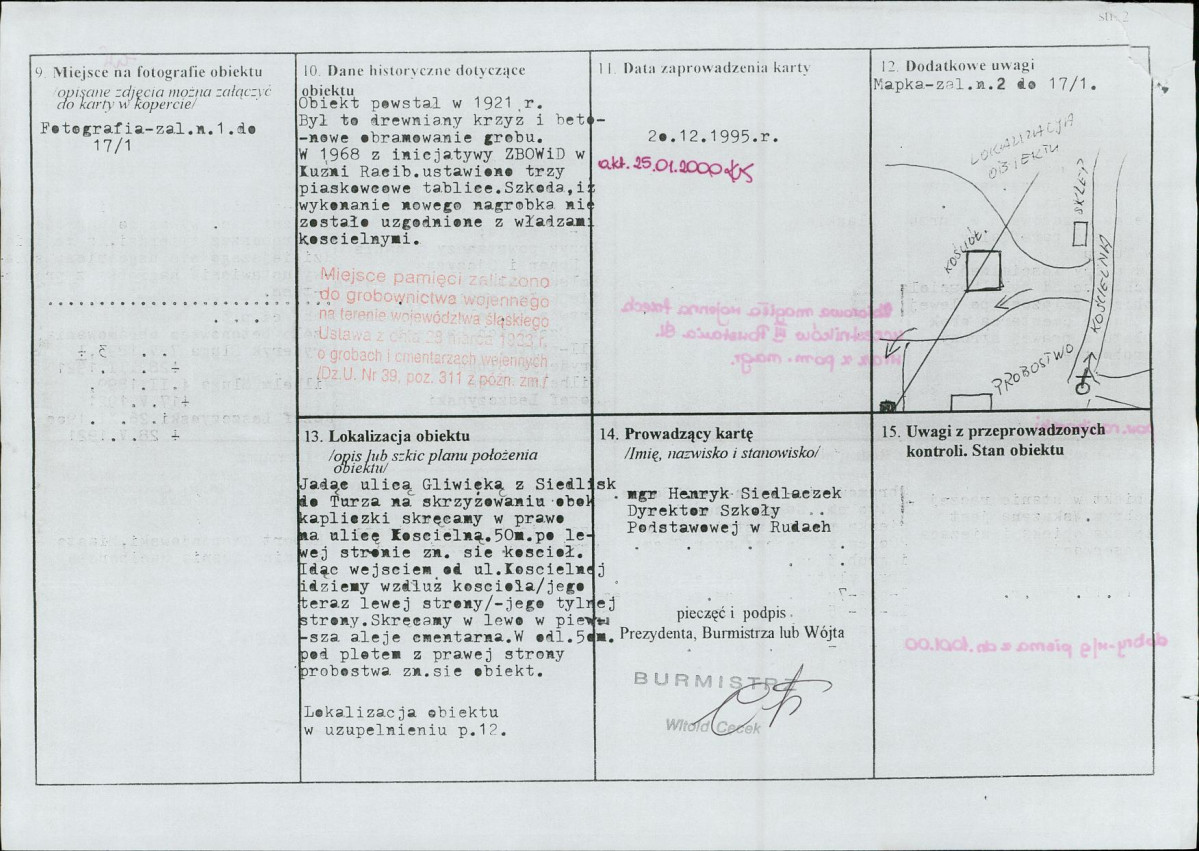 str. 2
9. Miejsce na fotografie obiektu
/opisane zdjęcia można załączyć
do karty w kopercie/
Fotografia-zal.n.1.do
17/1
10. Dane historyczne dotyczące
obiektu
Obiekt powstal w 1921 r.
Byl to drewniany krzyz i beto-
-nowe obramowanie grobu.
W 1968 z inicjatywy ZBOWiD w
Kuzni Racib.ustawiono trzy
piaskowcowe tablice.Szkoda,iz
wykonanie nowego nagrobka nie
zostało uzgodnione z władzami
koscielnymi.
Miejsce pamięci zaliczono
do grobownictwa wojennego
na terenie województwa śląskiego
Ustawa z dnia 28 marca 1933 r.
o grobach i cmentarzach wojennych
/Dz.U. Nr 39, poz. 311 z późn. zm./
11. Data zaprowadzenia karty
20.12.1995.r.
akt. 25.01.2000
12. Dodatkowe uwagi
Mapka-zal.n.2 do 17/1.
LOKALIZACJA
OBIEKTU
SKLEP
KOŚCIÓŁ.
KOŚCIELNA
PROBOSTWO
13. Lokalizacja obiektu
/opis lub szkic planu położenia
obiektu/
Jadąc ulicą Gliwięką z Siedlisk
do Turza na skrzyżowaniu obok
kapliczki skręcamy w prawo
na ulicę Koscielną.50m.po le-
wej stronie zn. sie koscioł.
Idąc wejsciem od ul.Koscielnej
idziemy wzdłuż kosciola/jego
teraz lewej strony/-jego tylnej
strony.Skręcamy w lewo w pierw-
-sza aleje cmentarna.W odl.50m.
pod plotem z prawej strony
probostwa zn.sie obiekt.
Lokalizacja obiektu
w uzupelnieniu p.12.
14. Prowadzący kartę
/Imię, nazwisko i stanowisko/
mgr Henryk Siedlaczek
Dyrektor Szkoły
Podstawowej w Rudach
pieczęć i podpis
Prezydenta, Burmistrza lub Wójta
BURMISTRZ
Witold Cęcek
15. Uwagi z przeprowadzonych
kontroli. Stan obiektu